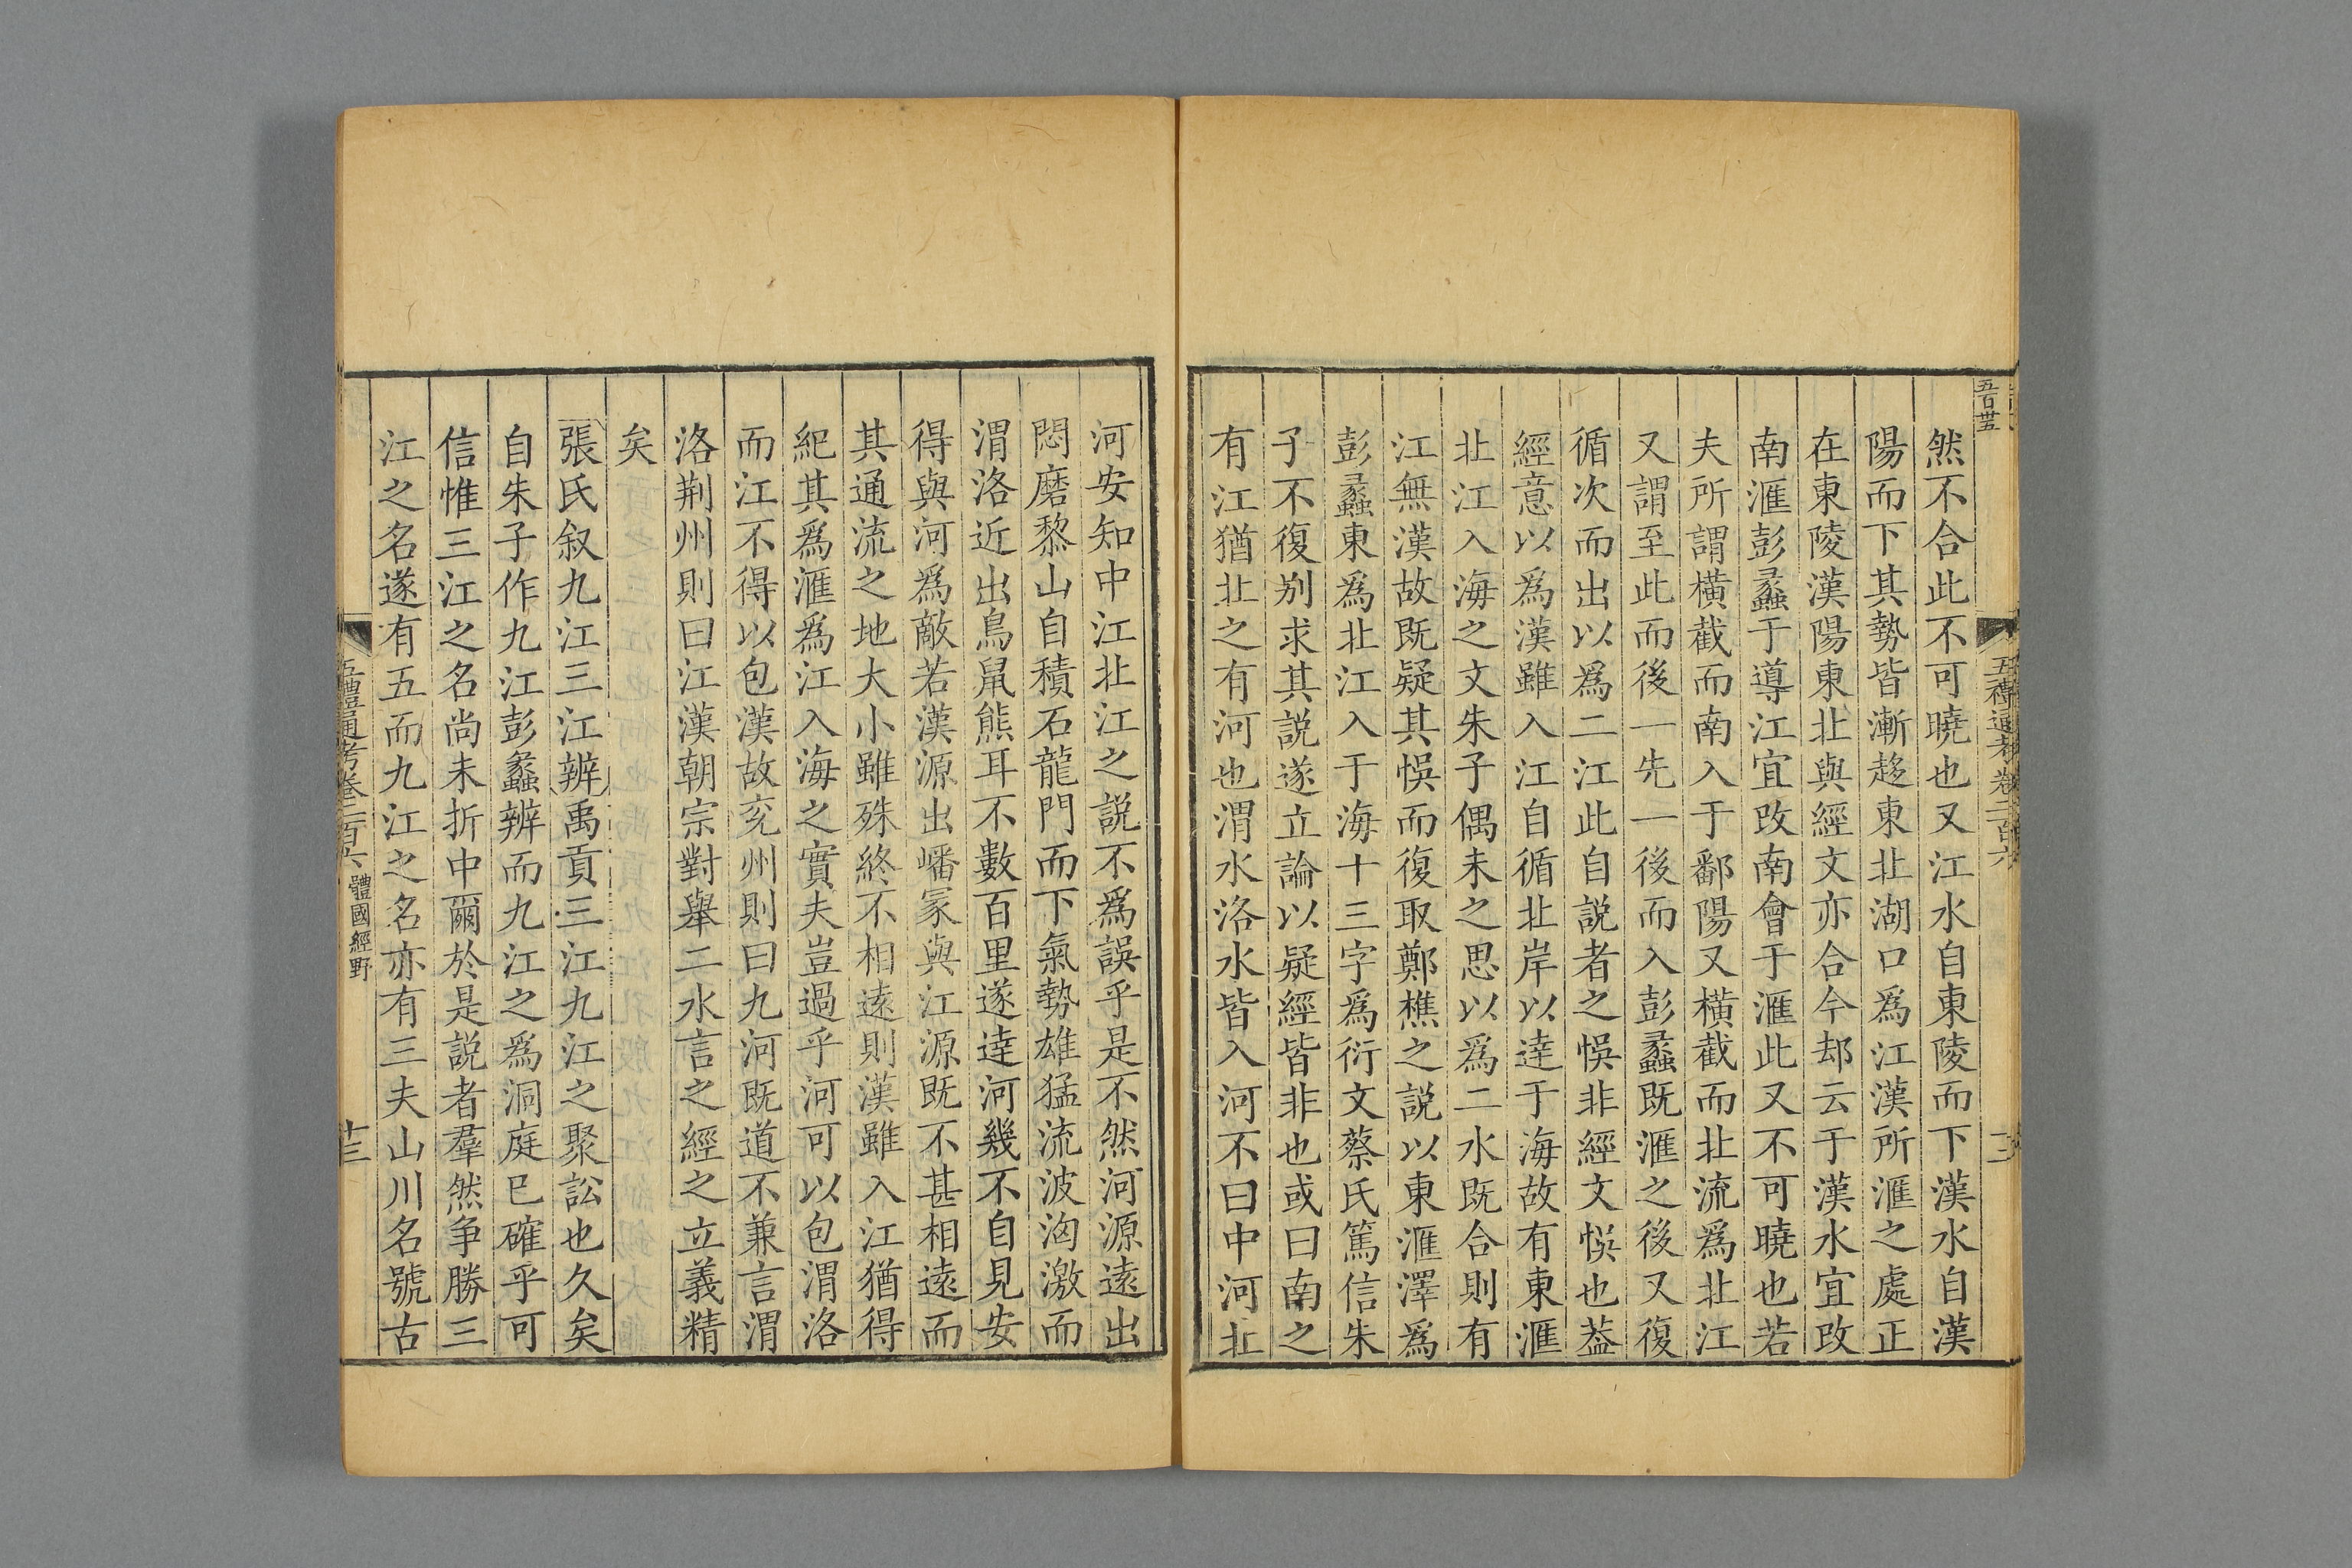 五百廿五
五禮通考卷二百六
然不合此不可曉也又江水自東陵而下漢水自漢
陽而下其勢皆漸趍東北湖口爲江漢所滙之處正
在東陵漢陽東北與經文亦合今却云于漢水宜改
南滙彭蠡于導江宜改南會于滙此又不可曉也若
夫所謂橫截而南入于鄱陽又橫截而北流爲北江
又謂至此而後一先一後而入彭蠡既滙之後又復
循次而出以爲二江此自説者之悞非經文悞也葢
經意以爲漢雖入江自循北岸以逹于海故有東滙
北江入海之文朱子偶未之思以爲二水既合則有
江無漢故既疑其悞而復取鄭樵之説以東滙澤爲
彭蠡東爲北江入于海十三字爲衍文蔡氏篤信朱
子不復别求其説遂立論以疑經皆非也或曰南之
有江猶北之有河也渭水洛水皆入河不曰中河北
河安知中江北江之説不爲誤乎是不然河源遠出
悶磨黎山自積石龍門而下氣勢雄猛流波洶激而
渭洛近出鳥䑕熊耳不數百里遂逹河幾不自見安
得與河爲敵若漢源出嶓冢與江源既不甚相遠而
其通流之地大小雖殊終不相遠則漢雖入江猶得
紀其爲滙爲江入海之實夫豈過乎河可以包渭洛
而江不得以包漢故兖州則曰九河既道不兼言渭
洛荆州則曰江漢朝宗對舉二水言之經之立義精
矣
張氏叙九江三江辨禹貢三江九江之聚訟也久矣
自朱子作九江彭蠡辨而九江之爲洞庭已確乎可
信惟三江之名尚未折中爾於是説者羣然争勝三
江之名遂有五而九江之名亦有三夫山川名號古
五禮通考卷二百六 體國經野
十三